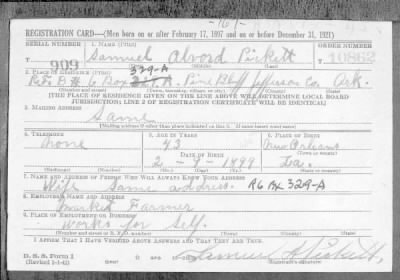 REGISTRATION CARD—(Men born on or after February 17, 1897 and on or before December 31, 1921)
SERIAL NUMBER 1. NAME (Print) ORDER NUMBER
T 909 Samuel Alvord Pickett T 10862
329-A
2. PLACE OF RESIDENCE (Print)
R.F.D # 6 Box Pine Bluff Jefferson Co. Ark.
(Number and street) (Town, township, village, or city) (County) (State)
[THE PLACE OF RESIDENCE GIVEN ON THE LINE ABOVE WILL DETERMINE LOCAL BOARD
JURISDICTION; LINE 2 OF REGISTRATION CERTIFICATE WILL BE IDENTICAL]
3. MAILING ADDRESS
Same
[Mailing address if other than place indicated on line 2. If same insert word same]
4. TELEPHONE 5. AGE IN YEARS 6. PLACE OF BIRTH
None 43 New Orleans
DATE OF BIRTH (Town or county)
2 - 9 - 1899 La.
(Exchange) (Number) (Mo.) (Day) (Yr.) (State or country)
7. NAME AND ADDRESS OF PERSON WHO WILL ALWAYS KNOW YOUR ADDRESS
Wife Same address. R6 Bx 329-A
8. EMPLOYER'S NAME AND ADDRESS
Market Farmer
9. PLACE OF EMPLOYMENT OR BUSINESS
Works for Self.
(Number and street or R. F. D. number) (Town) (County) (State)
I AFFIRM THAT I HAVE VERIFIED ABOVE ANSWERS AND THAT THEY ARE TRUE.
D. S. S. Form 1
(Revised 1-1-42) Samuel A Pickett